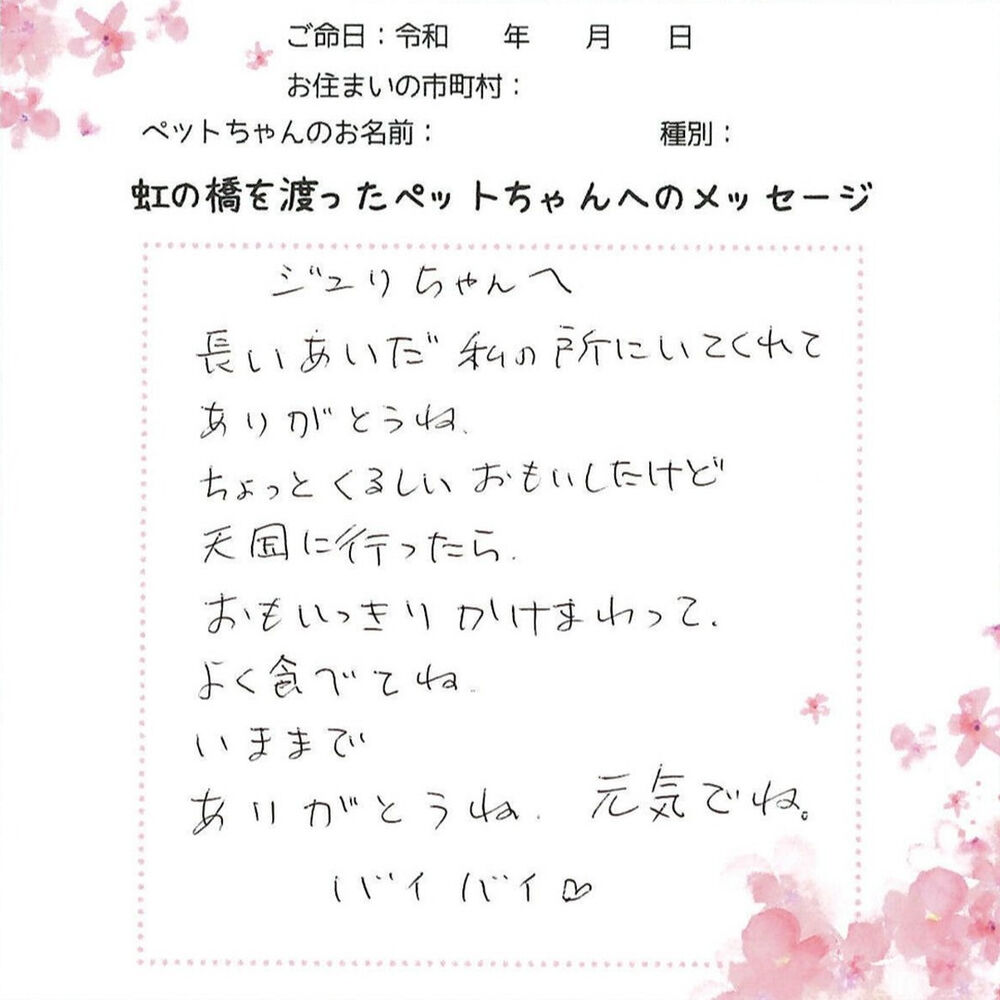 ご命日：令和　　年　　月　　日
お住まいの市町村：
ペットちゃんのお名前：　　　　　　　　種別：
虹の橋を渡ったペットちゃんへのメッセージ
ジュリちゃんへ
長いあいだ私の所にいてくれて
ありがとうね、
ちょっとくるしいおもいしたけど
天国に行ったら、
おもいっきりかけまわって、
よく食べてね、
いままで
ありがとうね、元気でね。
バイバイ♡